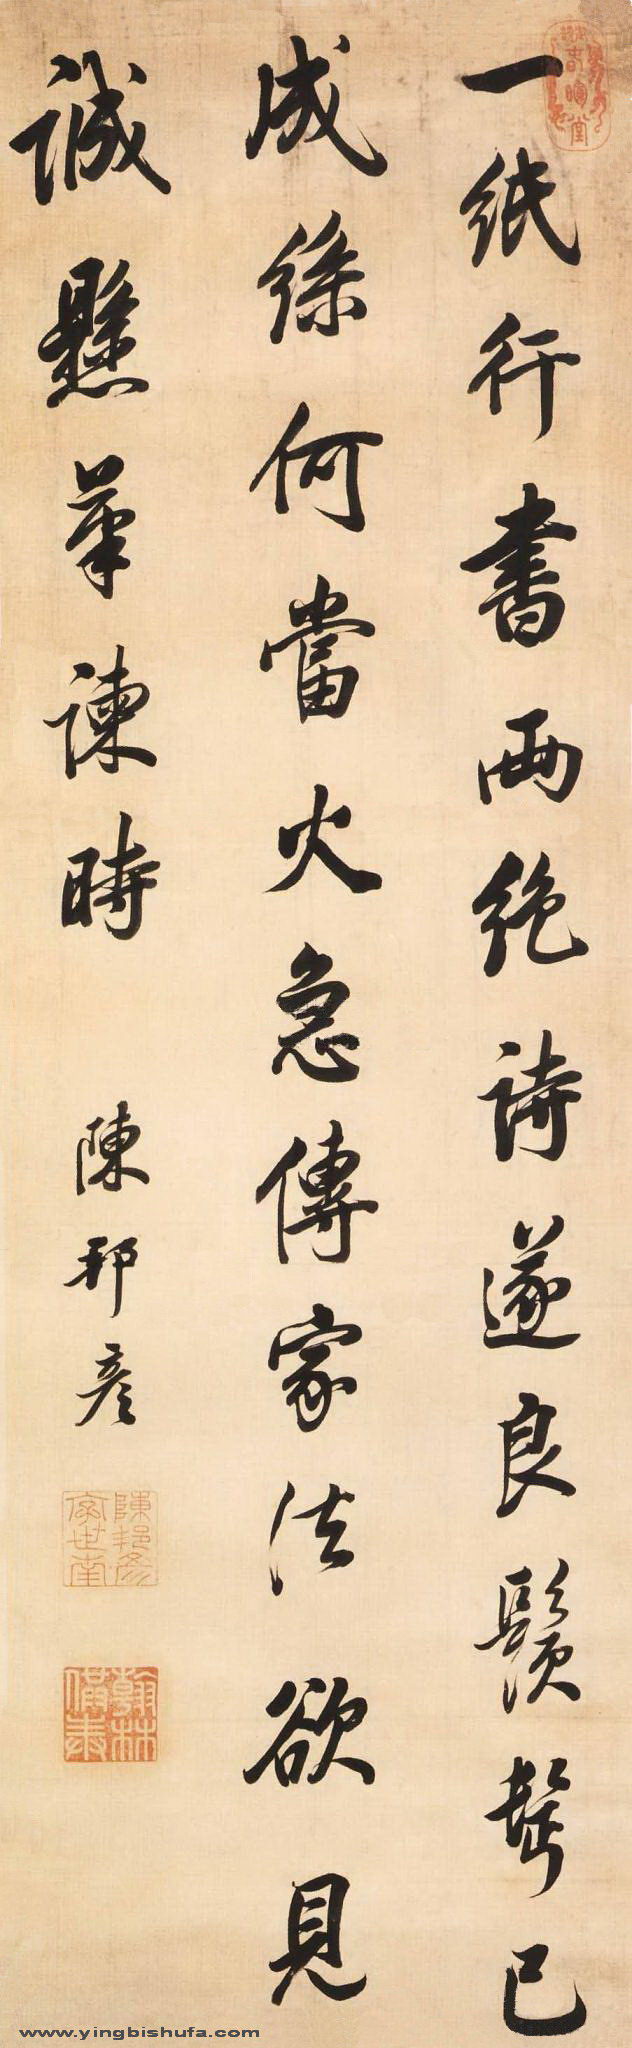 一紙行書兩絶詩遂良鬚鬢已
成絲何當火急傳家法欲見
誠懸筆諫時
陳邦彦
陳邦彦
翰林
www.yingbishufa.com